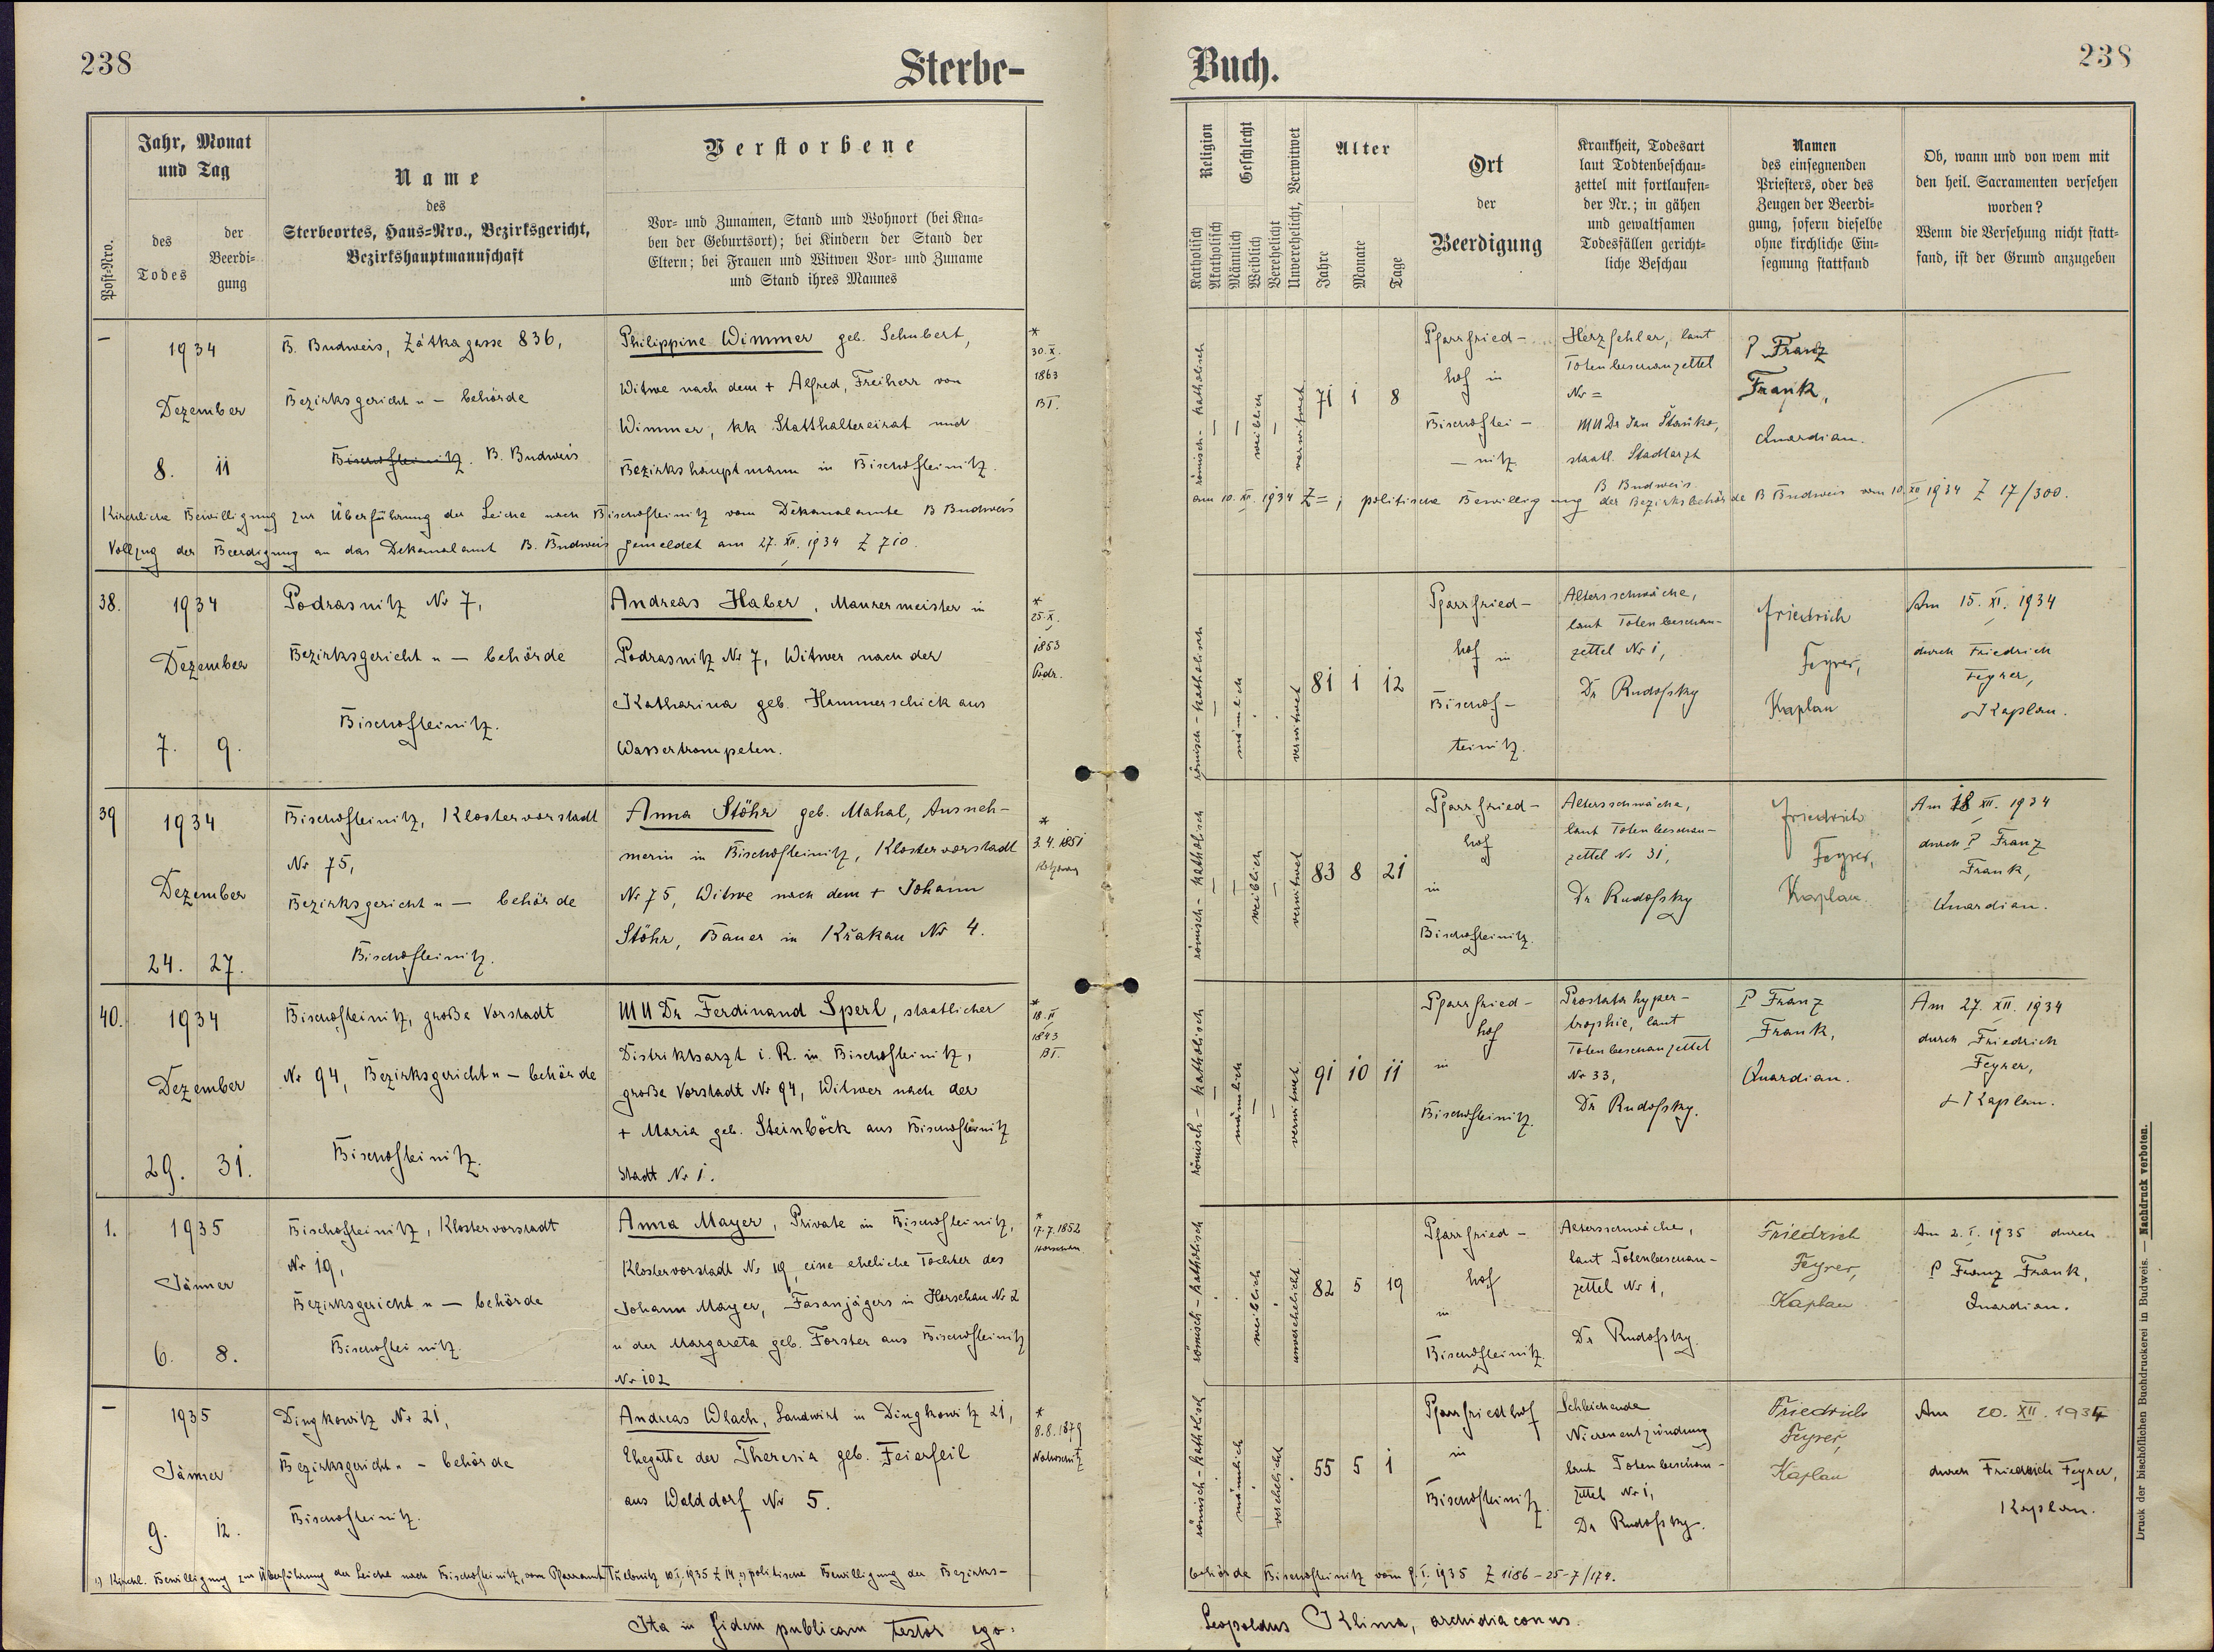 238
Sterbe-
Buch.
238
Post-Nro.
Jahr, Monat
und Tag
des
Todes
der
Beerdi-
gung
Name
des
Sterbeortes, Haus-Nro., Bezirksgericht,
Bezirkshauptmannschaft
Verstorbene
Vor- und Zunamen, Stand und Wohnort (bei Kna-
ben der Geburtsort); bei Kindern der Stand der
Eltern; bei Frauen und Witwen Vor- und Zuname
und Stand ihres Mannes
Religion
Katholisch
Akatholisch
Geschlecht
Männlich
Weiblich
Verehelicht
Unverehelicht, Verwitwet
Alter
Jahre
Monate
Tage
Ort
der
Beerdigung
Krankheit, Todesart
laut Todtenbeschau-
zettel mit fortlaufen-
der Nr.; in gähen
und gewaltsamen
Todesfällen gericht-
liche Beschau
Namen
des einsegnenden
Priesters, oder des
Zeugen der Beerdi-
gung, sofern dieselbe
ohne kirchliche Ein-
segnung stattfand
Ob, wann und von wem mit
den heil. Sacramenten versehen
worden?
Wenn die Versehung nicht statt-
fand, ist der Grund anzugeben
–
1934
Dezember
8. 11
B. Budweis, Zátkagasse 836,
Bezirksgericht u – behörde
Bischofteinitz. B. Budweis
Philippine Wimmer geb. Schubert,
Witwe nach dem + Alfred, Freiherr von
Wimmer, kk Statthaltereirat und
Bezirkshauptmann in Bischofteinitz.
*
30. X.
1863
BT.
römisch-katholisch
weiblich
verwitwet
71 1 8
Pfarrfried-
hof in
Bischoftei-
-nitz
Herzfehler, laut
Totenbeschauzettel
Nr =
MUDr Jan Staňko,
staatl. Stadtarzt
B Budweis
P Franz
Frank,
Quardian.
Kirchliche Bewilligung zur Überführung der Leiche nach Bischofteinitz vom Dekanalamte B Budweis
am 10. XII. 1934 Z = ; politische Bewilligung der Bezirksbehörde B Budweis vom 10. XII 1934 Z 17/300.
Vollzug der Beerdigung an das Dekanalamt B. Budweis gemeldet am 27. XII. 1934 Z 710.
38.
1934
Dezember
7. 9.
Podrasnitz Nr 7,
Bezirksgericht u – behörde
Bischofteinitz.
Andreas Haber, Maurermeister in
Podrasnitz Nr 7, Witwer nach der
Katharina geb. Hammerschick aus
Wassertrompeten.
*
25. X.
1853
Podr.
römisch-katholisch
männlich
verwitwet
81 1 12
Pfarrfried-
hof in
Bischof-
teinitz.
Altersschwäche,
laut Totenbeschau-
zettel Nr 1,
Dr Rudofsky
Friedrich
Feyrer,
Kaplan
Am 15. XI. 1934
durch Friedrich
Feyrer,
Kaplan.
39
1934
Dezember
24. 27.
Bischofteinitz, Klostervorstadt
Nr 75,
Bezirksgericht u – behörde
Bischofteinitz.
Anna Stöhr geb. Mahal, Ausneh-
merin in Bischofteinitz, Klostervorstadt
Nr 75, Witwe nach dem + Johann
Stöhr, Bauer in Křakau Nr 4.
*
3. 4. 1851
römisch-katholisch
weiblich
verwitwet
83 8 21
Pfarrfried-
hof
in
Bischofteinitz.
Altersschwäche,
laut Totenbeschau-
zettel Nr 31,
Dr Rudofsky
Friedrich
Feyrer,
Kaplan.
Am 18 XII. 1934
durch P Franz
Frank,
Quardian.
40.
1934
Dezember
29. 31.
Bischofteinitz, große Vorstadt
Nr 94, Bezirksgericht u – behörde
Bischofteinitz.
MUDr Ferdinand Sperl, staatlicher
Distriktsarzt i. R. in Bischofteinitz,
große Vorstadt Nr 94, Witwer nach der
+ Maria geb. Steinböck aus Bischofteinitz
Stadt Nr 1.
*
18. II
1843
BT.
römisch-katholisch
männlich
verwitwet
91 10 11
Pfarrfried-
hof
in
Bischofteinitz.
Prostatahyper-
trophie, laut
Totenbeschauzettel
Nr 33,
Dr Rudofsky.
P Franz
Frank,
Quardian.
Am 27. XII. 1934
durch Friedrich
Feyrer,
Kaplan.
1.
1935
Jänner
6. 8.
Bischofteinitz, Klostervorstadt
Nr 19,
Bezirksgericht u – behörde
Bischofteinitz.
Anna Mayer, Private in Bischofteinitz,
Klostervorstadt Nr 19, eine eheliche Tochter des
Johann Mayer, Fasanjägers in Horschau Nr 2
u der Margareta geb. Forster aus Bischofteinitz
Nr 102
*
17. 7. 1852
Horschau
römisch-katholisch
weiblich
unverehelicht
82 5 19
Pfarrfried-
hof
in
Bischofteinitz
Altersschwäche,
laut Totenbeschau-
zettel Nr 1,
Dr Rudofsky.
Friedrich
Feyrer,
Kaplan
Am 2. I. 1935 durch
P Franz Frank,
Quardian.
–
1935
Jänner
9. 12.
Dingkowitz Nr 21,
Bezirksgericht u – behörde
Bischofteinitz.
Andreas Wlach, Landwirt in Dingkowitz 21,
Ehegatte der Theresia geb. Feierfeil
aus Walddorf Nr 5.
*
8. 8. 1879
römisch-katholisch
männlich
verehelicht
55 5 1
Pfarrfriedhof
in
Bischofteinitz.
Schleichende
Nierenentzündung
laut Totenbeschau-
zettel Nr 1,
Dr Rudofsky.
Friedrich
Feyrer,
Kaplan
Am 20. XII. 1934
durch Friedrich Feyrer,
Kaplan.
1) Kirchl. Bewilligung zur Überführung der Leiche nach Bischofteinitz, vom Pfarramt 10. I. 1935 Z 14, politische Bewilligung der Bezirks-
behörde Bischofteinitz vom 9. I. 1935 Z 1186-25-7/174.
Ita in fidem publicam testor ego:
Leopoldus Klima, archidiaconus.
Druck der bischöflichen Buchdruckerei in Budweis. — Nachdruck verboten.